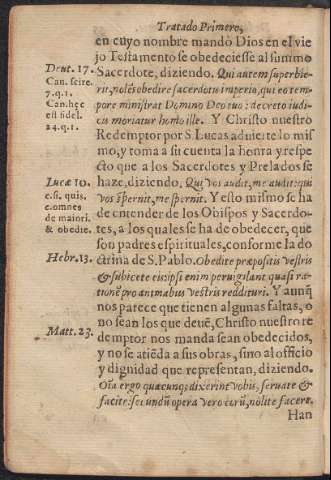 Tratado Primero,
en cuyo nombre mandò Dios en el vie
jo Testamento se obedeciesse al summo
Deut. 17.
Can. scire.
7. q. 1.
Can. hęc
est fidel.
24. q. 1.
Sacerdote, diziendo. Qui autem superbie-
rit, nolēs obedire sacerdotis imperio, qui eo tem-
pore ministrat Domino Deo tuo: decreto iudi-
cis moriatur homo ille. Y Christo nuestro
Redemptor por S. Lucas aduierte lo mis
mo, y toma a su cuenta la honra y respe
cto que a los Sacerdotes y Prelados se
Lucæ 10.
c. si. quis.
c. omnes
de maiori.
& obedie.
haze, diziendo. Qui vos audit, me audit: qui
vos spernit, me spernit. Y esto mismo se ha
de entender de los Obispos y Sacerdo-
tes, a los quales se ha de obedecer, que
son padres espirituales, conforme la do
Hebr. 13.
ctrina de S. Pablo. Obedite præpositis vestris
& subicete eis: ipsi enim peruigilant quasi ra-
tionē pro animabus vestris reddituri. Y aunq̃
nos parece que tienen algunas faltas, o
no sean los que deuē, Christo nuestro re
Matt. 23.
demptor nos manda sean obedecidos,
y no se atiēda a sus obras, sino al officio
y dignidad que representan, diziendo.
Oīa ergo quæcunq; dixerint vobis, seruate &
facite: secundū opera vero eorū, nolite facere.
Han